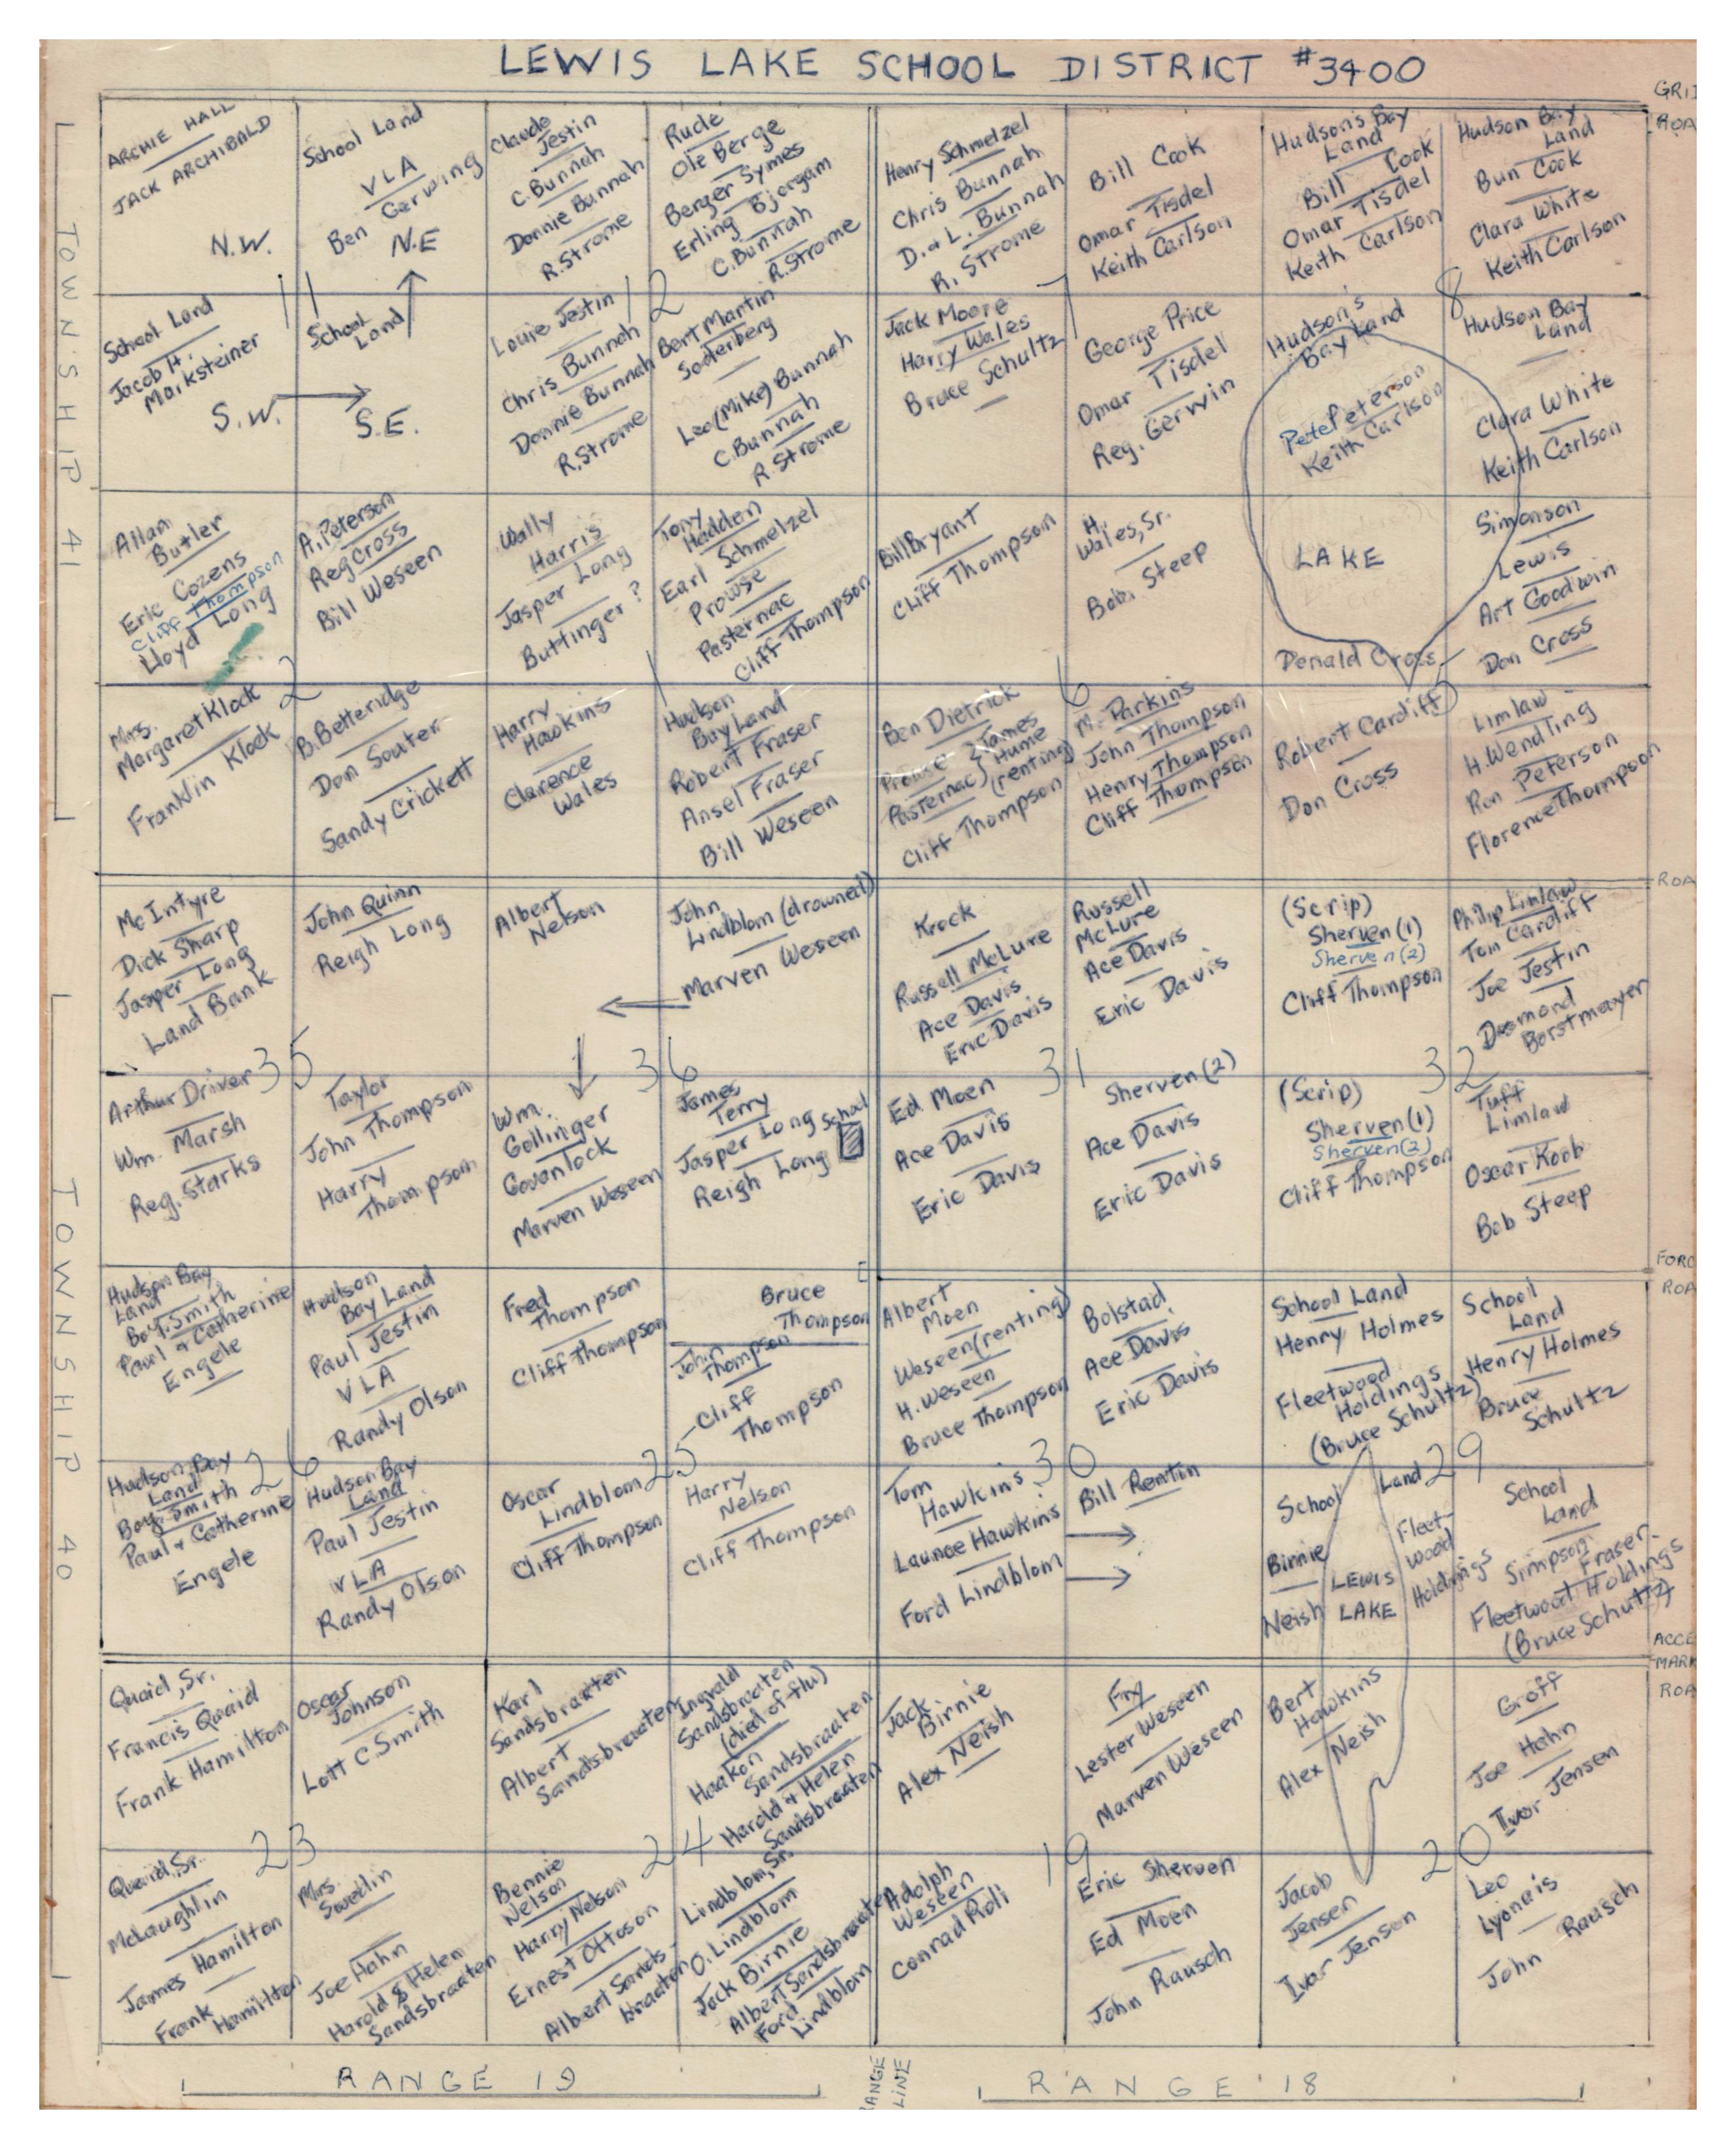 LEWIS LAKE SCHOOL DISTRICT #3400
ROA
TOWNSHIP 41
ARCHIE HALL
JACK ARCHIBALD
N.W.
School Land
VLA
Ben Gerwing
N.E
Claude
Jestin
C. Bunnah
Donnie Bunnah
R. Strome
Rude
Ole Berge
Berger Symes
Erling Bjorgam
C. Bunnah
R. Strome
Henry Schmelzel
Chris Bunnah
D. & L. Bunnah
R. Strome
Bill Cook
Omar Tisdel
Keith Carlson
Hudson's Bay
Land
Bill Cook
Omar Tisdel
Keith Carlson
Hudson Bay
Land
Bun Cook
Clara White
Keith Carlson
11
12
7
8
School Land
Jacob H.
Marksteiner
S.W.
School
Land
S.E.
Louie Jestin
Chris Bunnah
Donnie Bunnah
R. Strome
Bert Martin
Soderberg
Leo (Mike) Bunnah
C. Bunnah
R. Strome
Jack Moore
Harry Wales
Bruce Schultz
George Price
Omar Tisdel
Reg. Gerwin
Hudson's
Bay Land
Pete Peterson
Keith Carlson
Hudson Bay
Land
Clara White
Keith Carlson
Allan
Butler
Eric Cozens
Cliff Thompson
Lloyd Long
A. Peterson
Reg Cross
Bill Weseen
Wally
Harris
Jasper Long
Buttinger ?
Tony
Hadden
Earl Schmelzel
Prowse
Pasternac
Cliff Thompson
Bill Bryant
Cliff Thompson
H.
Wales, Sr.
Bob Steep
LAKE
Donald Cross
Simonson
Lewis
Art Goodwin
Don Cross
2
1
6
5
Mrs.
Margaret Klock
Franklin Klock
B. Betteridge
Don Souter
Sandy Crickett
Harry
Hawkins
Clarence
Wales
Hudson
Bay Land
Robert Fraser
Ansel Fraser
Bill Weseen
Ben Dietrick
Prowse } James
Pasternac } Hume
(renting)
Cliff Thompson
M. Parkins
John Thompson
Henry Thompson
Cliff Thompson
Robert Cardiff
Don Cross
Limlaw
H. Wendling
Ron Peterson
Florence Thompson
ROA
TOWNSHIP 40
McIntyre
Dick Sharp
Jasper Long
Land Bank
John Quinn
Reigh Long
Albert
Nelson
John
Lindblom (drowned)
Marven Weseen
Krock
Russell McLure
Ace Davis
Eric Davis
Russell
McLure
Ace Davis
Eric Davis
(Scrip)
Sherven (1)
Sherven (2)
Cliff Thompson
Philip Limlaw
Tom Cardiff
Joe Jestin
Desmond
Borstmayer
35
36
31
32
Arthur Driver
Wm. Marsh
Reg. Starks
Taylor
John Thompson
Harry
Thompson
Wm.
Gollinger
Govanlock
Marven Weseen
James
Terry
Jasper Long
School
Reigh Long
Ed Moen
Ace Davis
Eric Davis
Sherven (2)
Ace Davis
Eric Davis
(Scrip)
Sherven (1)
Sherven (2)
Cliff Thompson
Tuff
Limlaw
Oscar Koob
Bob Steep
FORD
ROA
Hudson Bay
Land
Boy. Smith
Paul & Catherine
Engele
Hudson
Bay Land
Paul Jestin
VLA
Randy Olson
Fred
Thompson
Cliff Thompson
Bruce
Thompson
John
Thompson
Cliff
Thompson
Albert
Moen
Weseen (renting)
H. Weseen
Bruce Thompson
Bolstad
Ace Davis
Eric Davis
School Land
Henry Holmes
Fleetwood
Holdings
(Bruce Schultz)
School
Land
Henry Holmes
Bruce
Schultz
26
25
30
29
Hudson Bay
Land
Boy. Smith
Paul & Catherine
Engele
Hudson Bay
Land
Paul Jestin
VLA
Randy Olson
Oscar
Lindblom
Cliff Thompson
Harry
Nelson
Cliff Thompson
Tom
Hawkins
Launce Hawkins
Ford Lindblom
Bill Rentin
School Land
Binnie
Neish
LEWIS
LAKE
Fleet-
wood
Holdings
School
Land
Simpson Fraser
Fleetwood Holdings
(Bruce Schultz)
ACCE
MARK
ROA
Quaid, Sr.
Francis Quaid
Frank Hamilton
Oscar
Johnson
Lott C. Smith
Karl
Sandsbraaten
Albert
Sandsbraaten
Ingvald
Sandsbraaten
(died of flu)
Haakon
Sandsbraaten
Harold & Helen
Sandsbraaten
Jack
Birnie
Alex Neish
Fry
Lester Weseen
Marven Weseen
Bert
Hawkins
Alex Neish
Groff
Joe Hahn
Ivor Jensen
23
24
19
20
Quaid, Sr.
McLaughlin
James Hamilton
Frank
Hamilton
Mrs.
Swedlin
Joe Hahn
Harold & Helen
Sandsbraaten
Bennie
Nelson
Harry Nelson
Ernest Ottoson
Albert Sands-
braaten
Lindblom, Sr.
O. Lindblom
Jack Birnie
Albert Sandsbraaten
Ford
Lindblom
Adolph
Weseen
Conrad Roli
Eric Sherven
Ed Moen
John Rausch
Jacob
Jensen
Ivor Jensen
Leo
Lyonais
John Rausch
RANGE 19
RANGE
LINE
RANGE 18